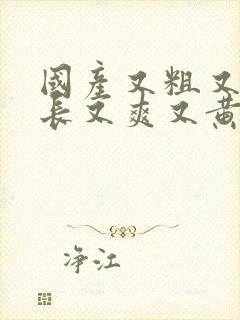 國產又粗又
長又爽又黃
净江